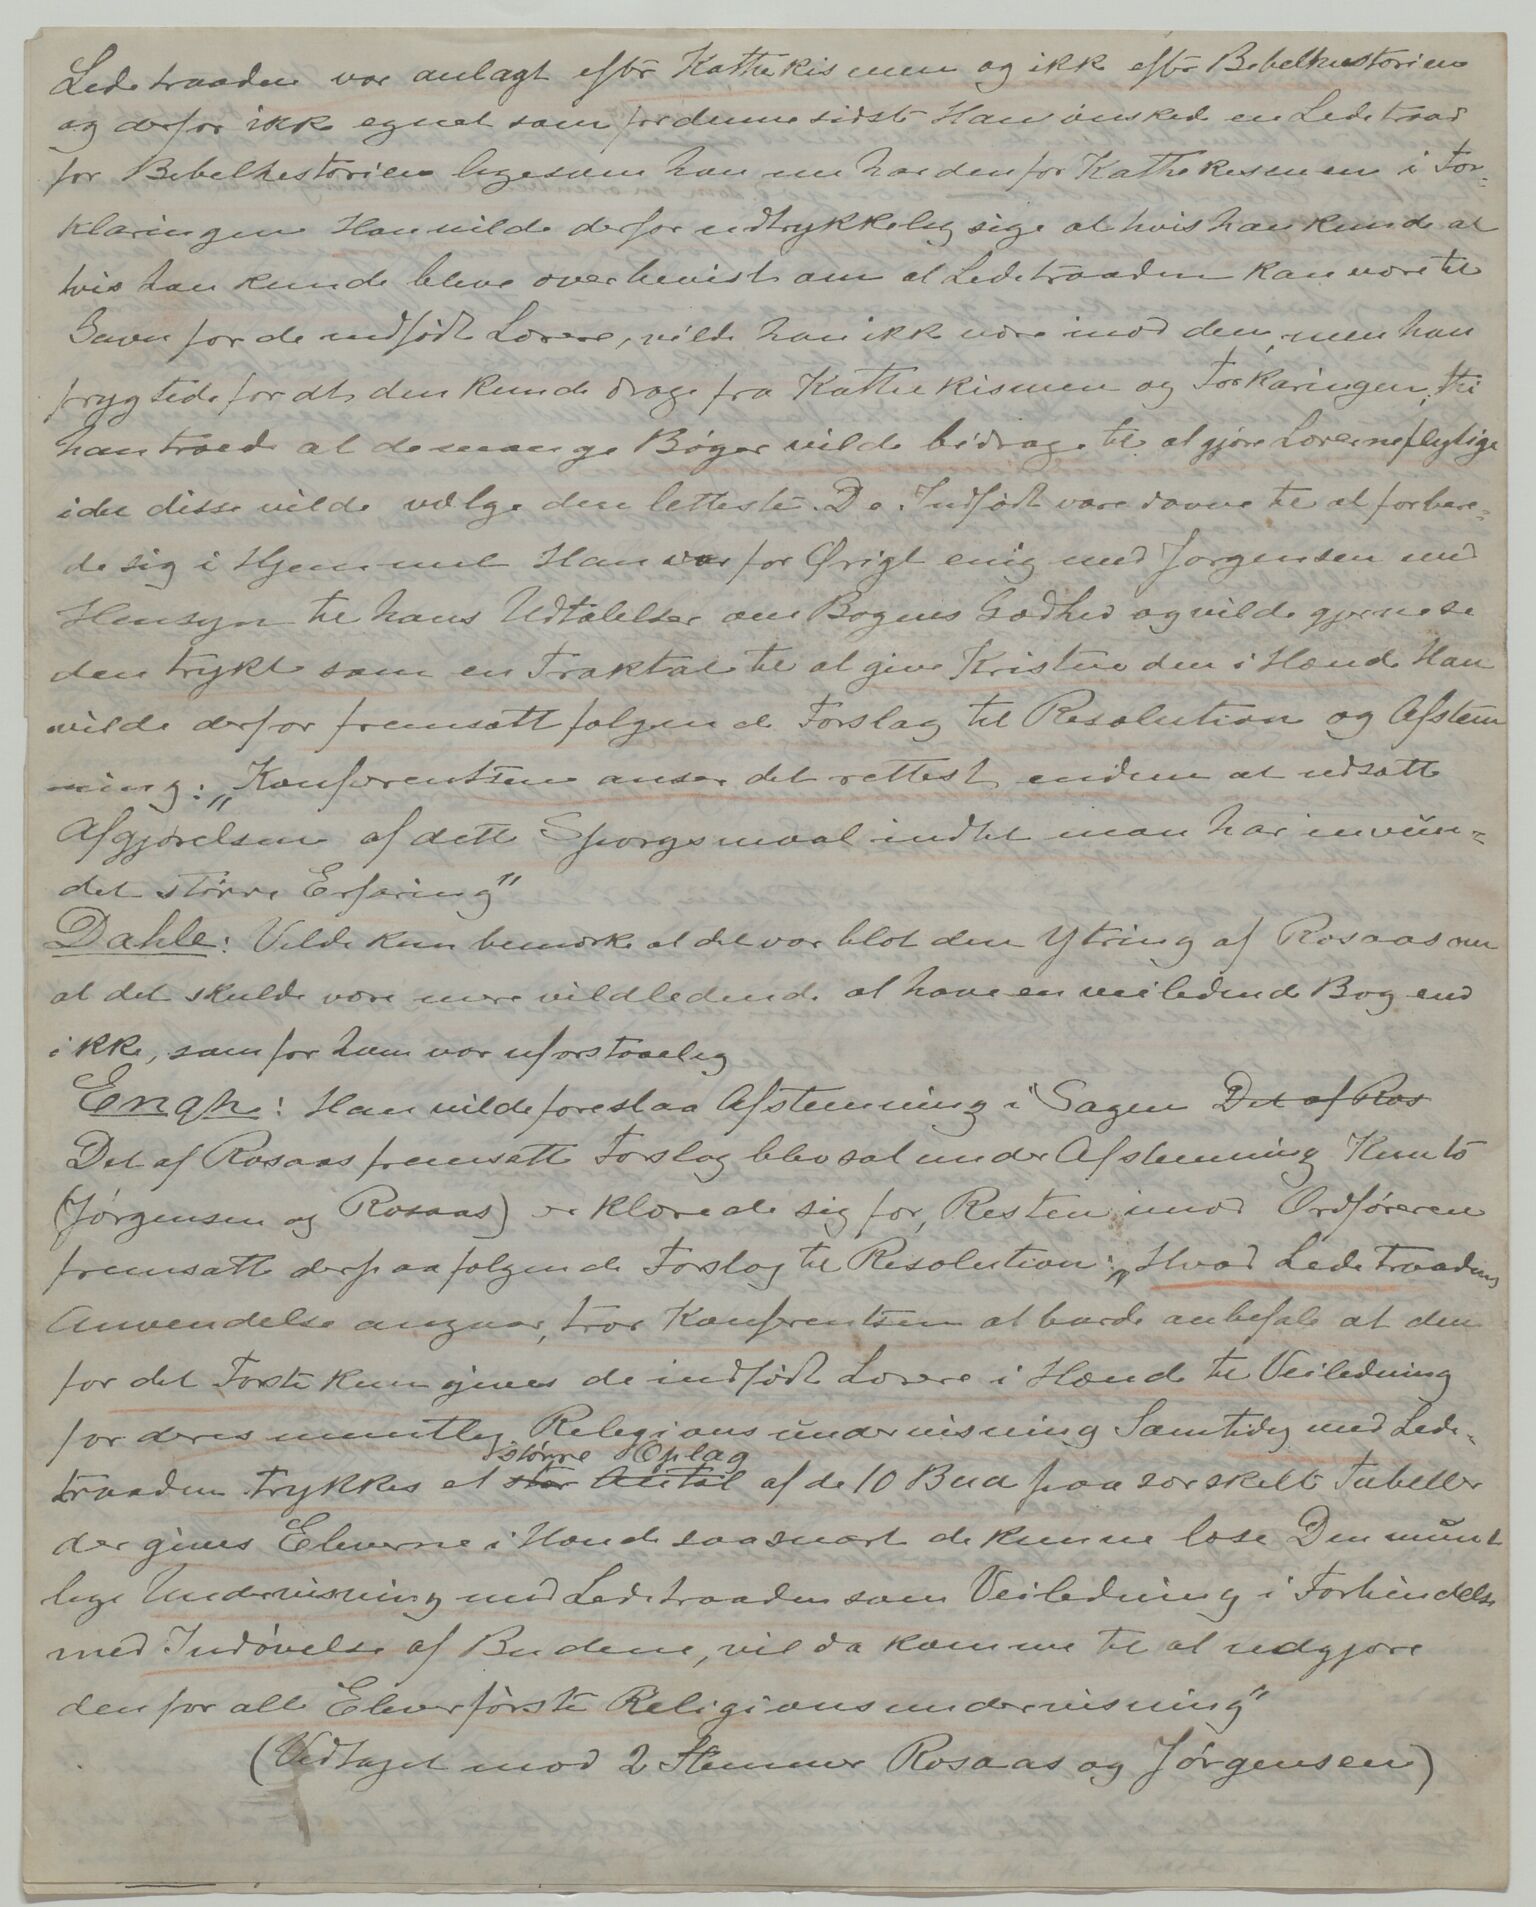 Ledetraaden var anlagt efter Kathekismen og ikke efter Bibelhistorien
og derfor ikke egnet som for denne sidste Han ønskede en Ledetraad
for Bibelhistorien ligesom han nu har den for Kathekismen i For-
klaringen Han vilde derfor udtrykkelig sige at hvis han kunde at
hvis han kunde blive overbevist om at Ledetraaden kan være til
Gavn for de indfødte Lærere, vilde han ikke være imod den, men han
frygtede for at den kunde drage fra Kathekismen og Forkaringen, thi
han troede at de mange Bøger vilde bidrage til at gjøre Lærerne flygtige
idet disse vilde vælge den letteste. De Indfødte vare vanne til at forbere-
de sig i Hjemmet Han var for Øvrigt enig med Jørgensen med
Hensyn til hans Udtalelser om Bogens Godhed og vilde gjerne se
den trykt som en Traktat til at give Kristne den i Hænde Han
vilde derfor fremsætte følgende Forslag til Resolution og Afstem
ning: „Konferentsen anser det rettest endnu at udsætte
Afgjørelsen af dette Spørgsmaal indtil man har invun-
det større Erfaring"
Dahle: Vilde kun bemærke at det var blot den Ytring af Rosaas om
at det skulde være mere vildledende at have en veiledende Bog end
ikke, som for ham var uforstaaelig
Engh: Han vilde foreslaa Afstemning i Sagen Det af Ros
Det af Rosaas fremsatte Forslag blev sat under Afstemning Kun to
(Jørgensen og Rosaas) erklærede sig for, Resten imod Ordføreren
fremsatte derpaa følgende Forslag til Resolution: „Hvad Ledetraadens
Anvendelse angaar, tror Konferentsen at burde anbefale at den
for det Første kun gives de indfødte Lærere i Hænde til Veiledning
for deres mundtlig Religionsundervisning Samtidig med Lede-
større Oplag
traaden trykkes et stor Antal af de 10 Bud paa særskilte Tabeller
der gives Eleverne i Hænde saasnart de kunne læse Den mundt
lige Undervisning med Ledetraaden som Veiledning i Forbindelse
med Indøvelse af Budene, vil da komme til at udgjøre
den for alle Elever første Religionsundervisning"
(Vedtaget mod 2 Stemmer Rosaas og Jørgensen)